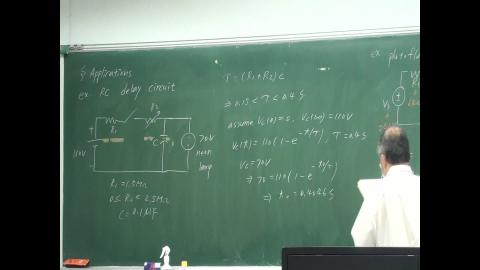 § Applications
ex RC delay circuit
R1
R2
110V
C
70V
neon
lamp
R1 = 1.5MΩ
0 ≤ R2 ≤ 2.5MΩ
C = 0.1μF
T = (R1+R2)C
⇒ 0.15 < T < 0.4 S
assume Vc(0) = 0, Vc(∞) = 110V
Vc(t) = 110(1 - e^{-t/T}), T = 0.4 S
Vc = 70V
⇒ 70 = 110(1 - e^{-t0/T})
⇒ t0 = 0.4046 S
ex photofla
Vs